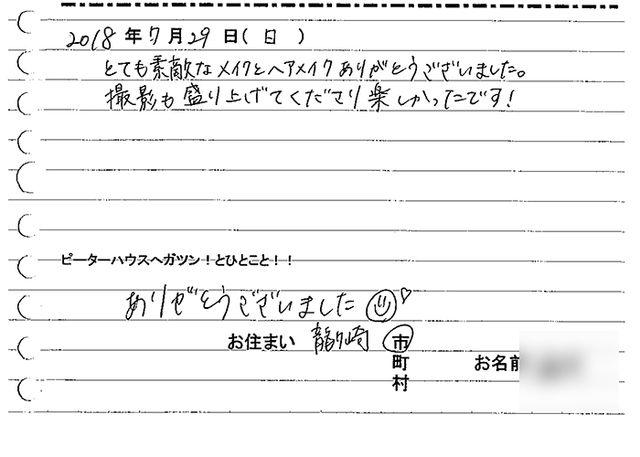 2018年7月29日(日)
とても素敵なメイクとヘアメイクありがとうございました。
撮影も盛り上げてくださり楽しかったです!
ピーターハウスへガツン!とひとこと!!
ありがとうございました
お住まい 龍ヶ崎 市
町 お名前
村